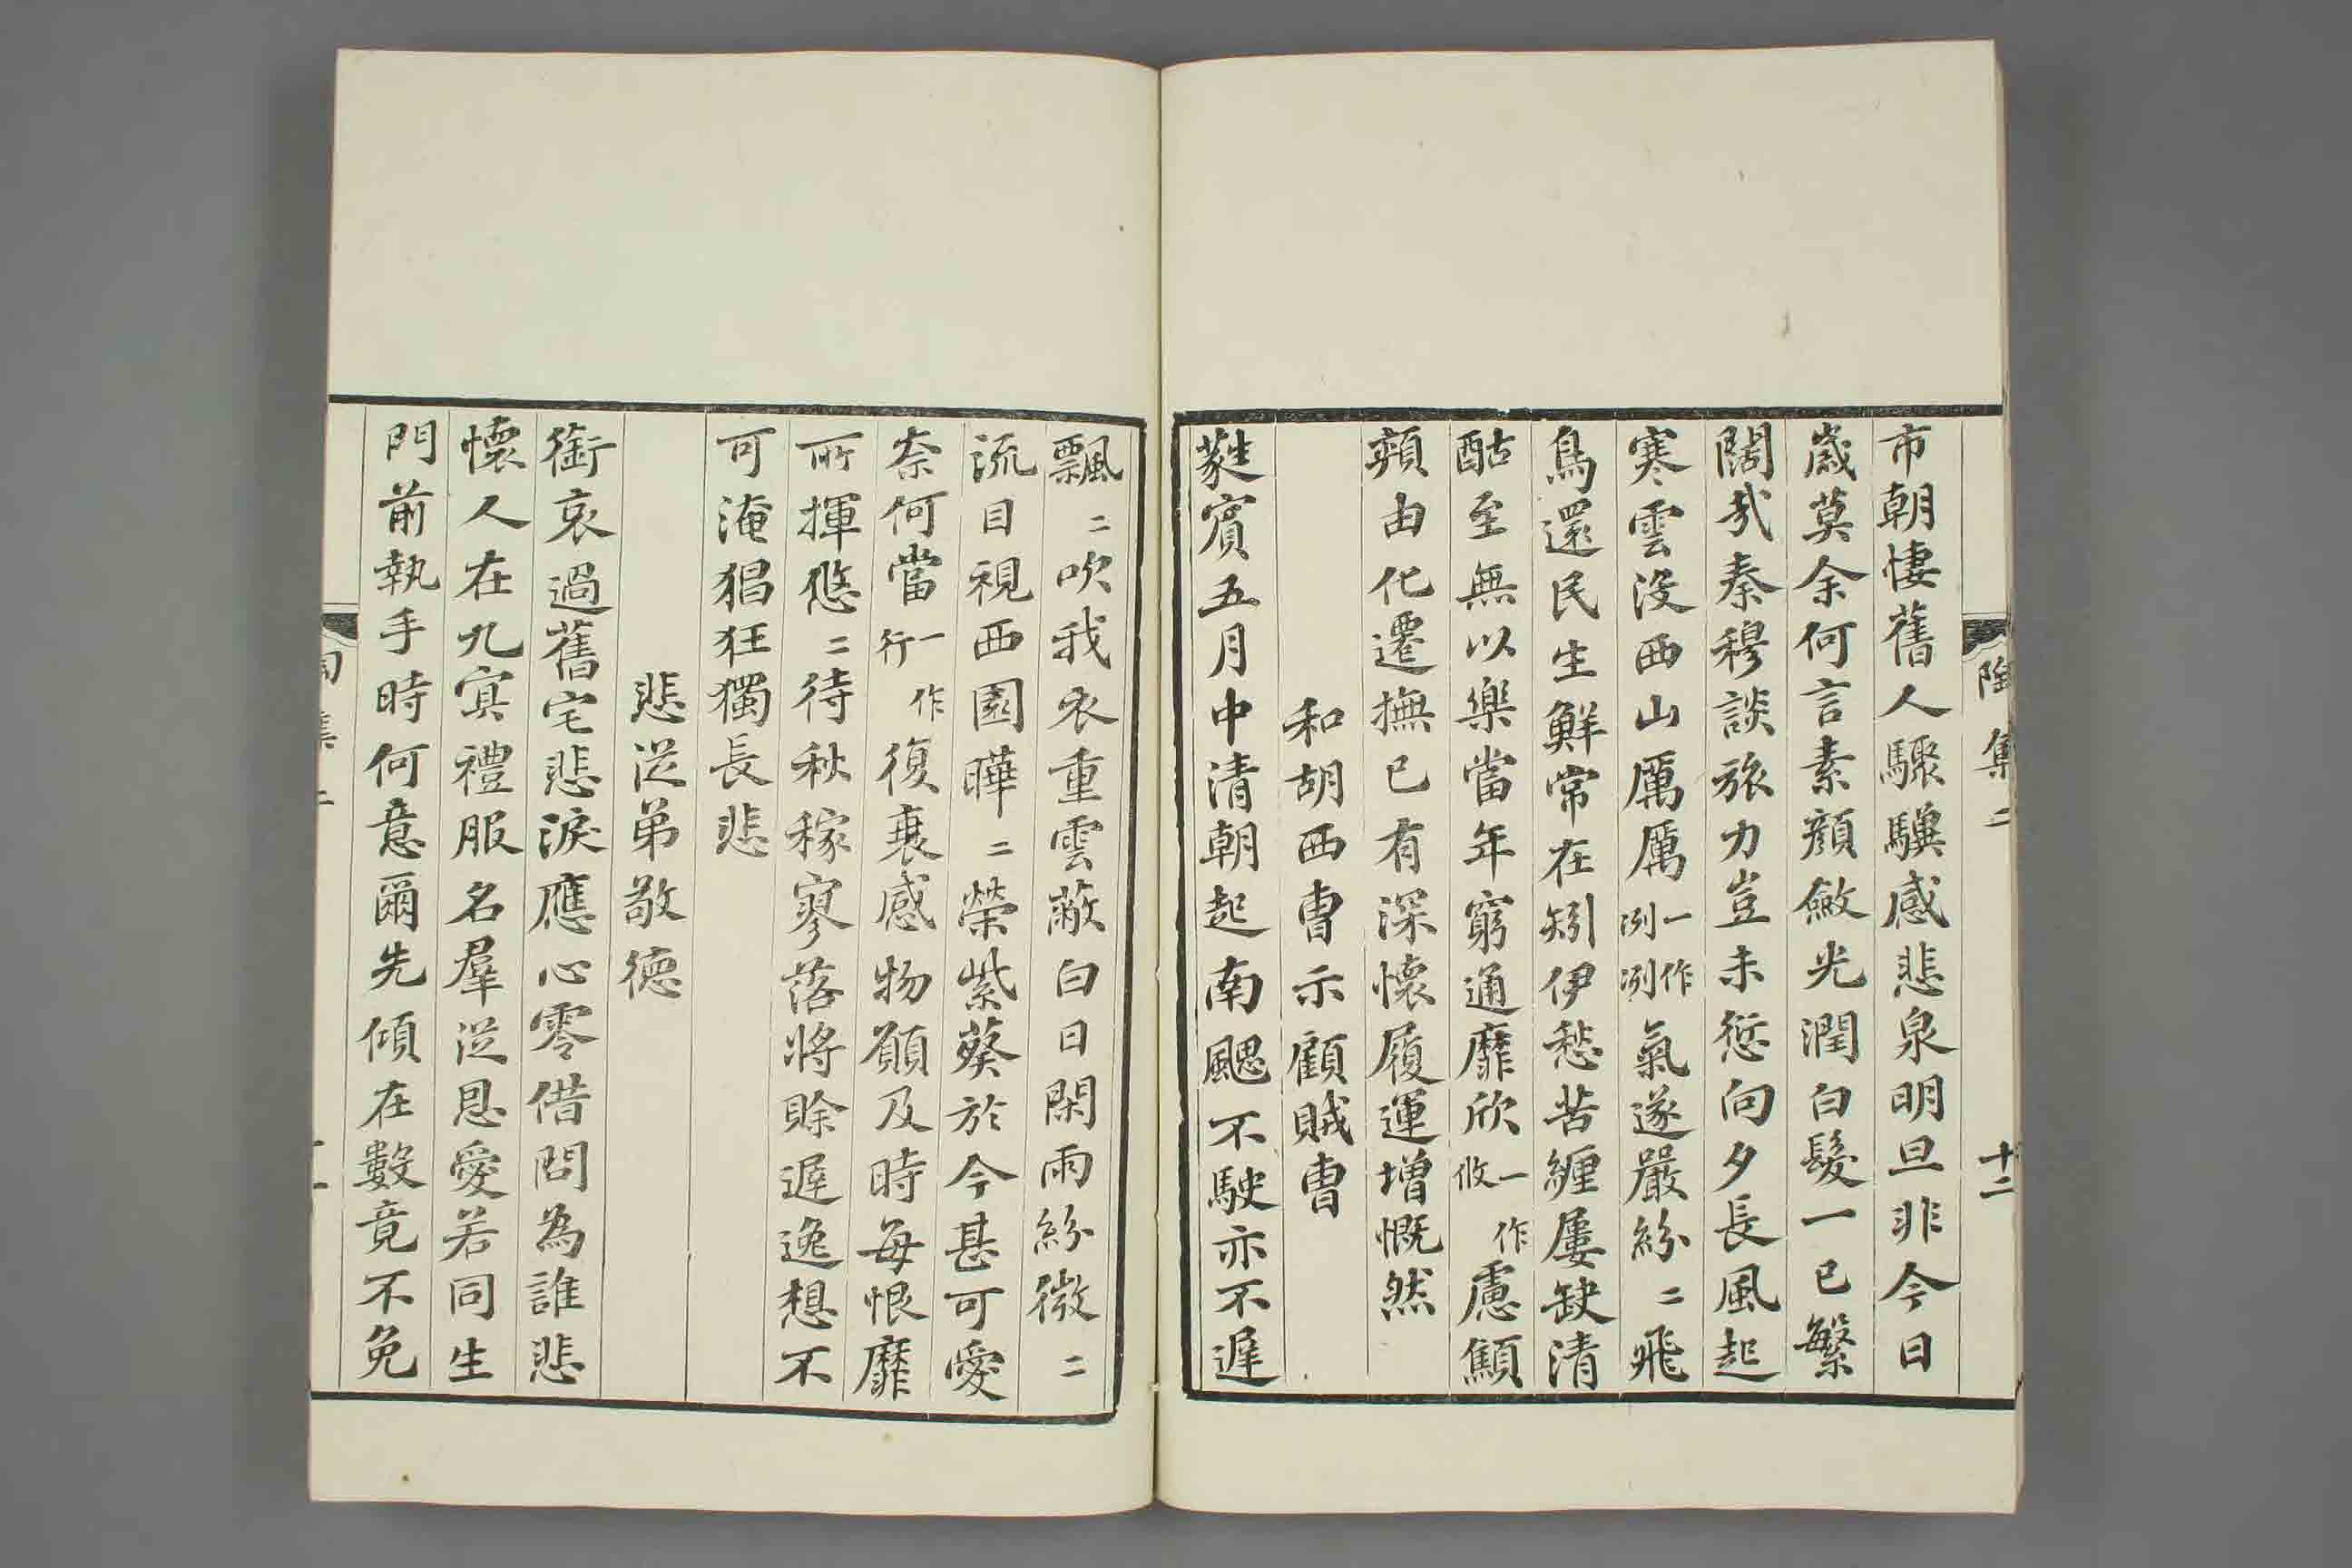 陶集二 十二
市朝悽舊人驟驥感悲泉明旦非今日
歲莫余何言素顏斂光潤白髮一已繁
闊哉秦穆談旅力豈未愆向夕長風起
寒雲沒西山厲厲一作洌洌氣遂嚴紛二飛
鳥還民生鮮常在矧伊愁苦纏屢缺清
酤至無以樂當年窮通靡欣一作攸慮顦
顇由化遷撫已有深懷履運增慨然
和胡西曹示顧賊曹
蕤賓五月中清朝起南颸不駛亦不遲
飄二吹我衣重雲蔽白日閑雨紛微二
流目視西園曄二榮紫葵於今甚可愛
奈何當一作行復衰感物願及時每恨靡
所揮悠二待秋稼寥落將賒遲逸想不
可淹猖狂獨長悲
悲從弟敬德
銜哀過舊宅悲淚應心零借問為誰悲
懷人在九冥禮服名羣從恩愛若同生
門前執手時何意爾先傾在數竟不免